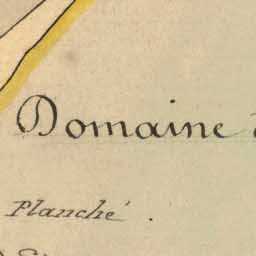 Domaine
Planché .